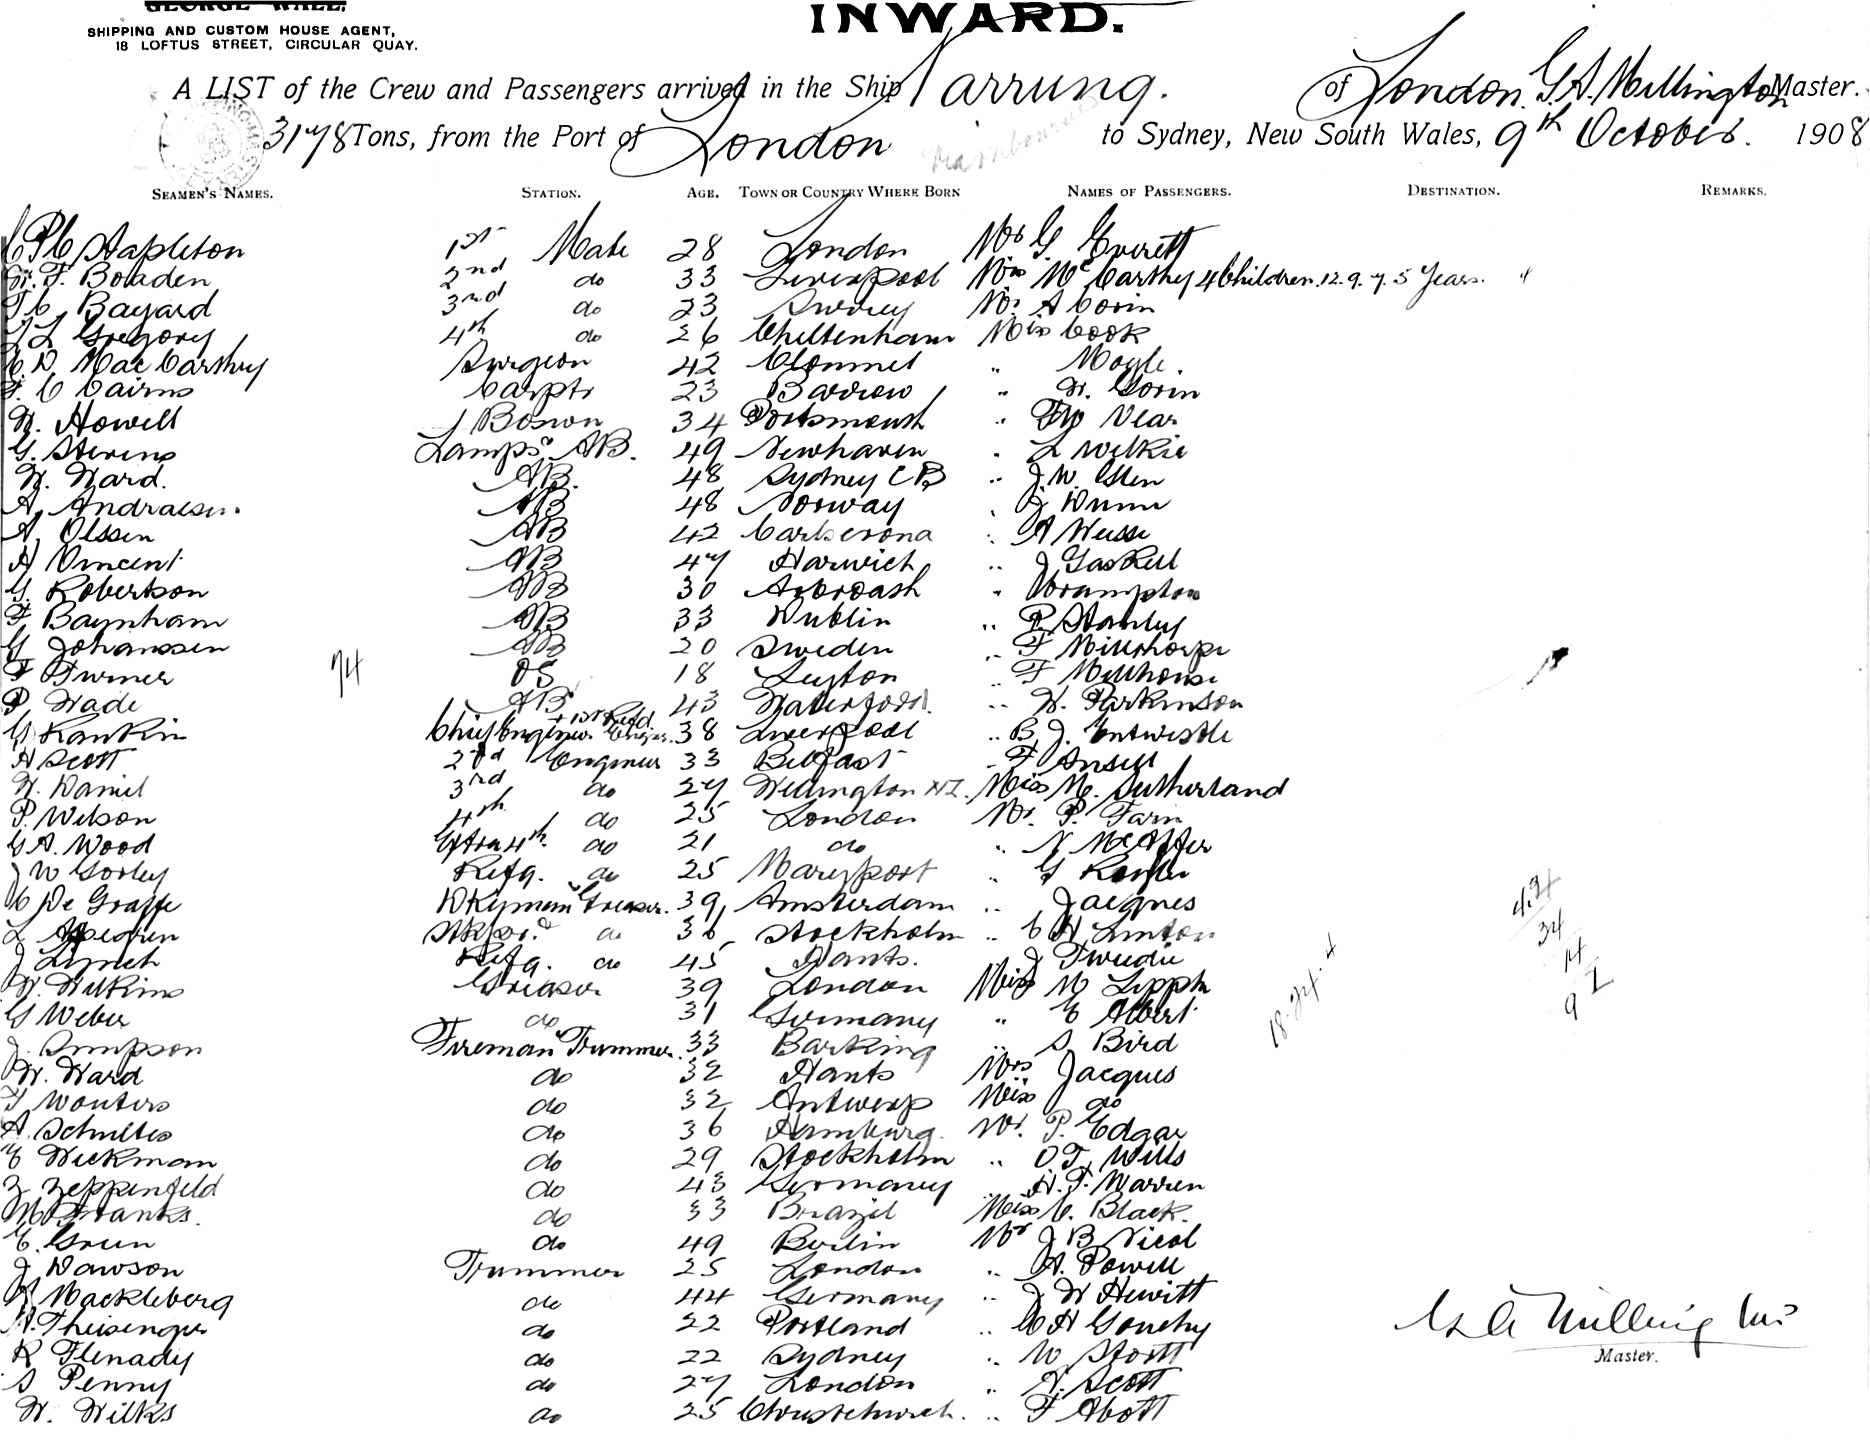 GEORGE WALL.
SHIPPING AND CUSTOM HOUSE AGENT,
18 LOFTUS STREET, CIRCULAR QUAY.
INWARD.
A LIST of the Crew and Passengers arrived in the Ship Narrung. of London. G.A. Millington Master.
3178 Tons, from the Port of London to Sydney, New South Wales, 9th October. 1908
SEAMEN'S NAMES. STATION. AGE. TOWN OR COUNTRY WHERE BORN NAMES OF PASSENGERS. DESTINATION. REMARKS.
Stapleton 1st Mate 28 London Mrs G. Everett
F. Boaden 2nd do 33 Liverpool Mrs McCarthy 4 Children. 12. 9. 7. 5 Years.
Bayard 3rd do 23 Surrey Mr. A Corin
Gregory 4th do 26 Cheltenham Miss Cook
MacCarthy Surgeon 42 Clonmel " Moyle.
C Cairns Carptr 23 Barrow " W. Gorin
W. Howell Bosun 34 Portsmouth " Vear
G. Stevens Lamps & AB. 49 Newhaven " L Wilkie
W. Ward. AB. 48 Sydney CB " J. W. Glen
A. Andraesen. AB 48 Norway " J Dunn
A. Olssen AB 42 Carlscrona " A Weisse
A Vincent AB 47 Harwich " J Gaskell
G. Robertson AB 30 Arbroash " Brampton
F Baynham AB 33 Dublin " P. Stanley
G Johanssen AB 20 Sweden " F Millthorpe
F Turner 74 OS 18 Leyton " F Millhouse
P. Wade AB 43 Waterford. " W. Parkinson
G Rankin Chief Engineer + 1st Refd. Engr. 38 Liverpool " B. J. Entwistle
A Scott 2nd Engineer 33 Belfast " F Ansell
W. Daniel 3rd do 27 Wellington NZ. Miss M. Sutherland
P. Wilson 4th do 25 London Mr. P. Farn
G A. Wood Extra 4th do 21 do " N
J W Gorley Refg. do 25 Maryport " G
C De Graffe Dkyman & Greaser. 39 Amsterdam " Jacques
L Stkpr. & do 36 Stockholm " C H Linton
J Lynch Refg. do 45 Hants. J Tweedie
W. Wilkins Greaser 39 London Miss M Lipph
G Weber do 31 Germany " E Albert
J. Simpson Fireman & Trimmer. 33 Barking " S. Bird
W. Ward do 32 Hants Mrs Jacques
F Wouters do 32 Antwerp Miss do
A Schultes do 36 Hamburg. Mr. P. Edgar
E Wickman do 29 Stockholm " O T. Wills
Z Zeppenfeld do 43 Germany " H. F. Warren
M Franks. do 33 Brazil Miss C. Black.
E. Grun do 49 Berlin Mr J B Nicol
J Dawson Trimmer 25 London " A. Powell
Mackleberg do 44 Germany " J W Hewitt
A. Theisenger do 22 Portland " C H Gouchy
R Flenady do 22 Sydney " W Stott
S Penny do 27 London " N. Scott
W. Wilks do 25 Christchurch. " F Abott
18. 24. 4
G A Millington
Master.